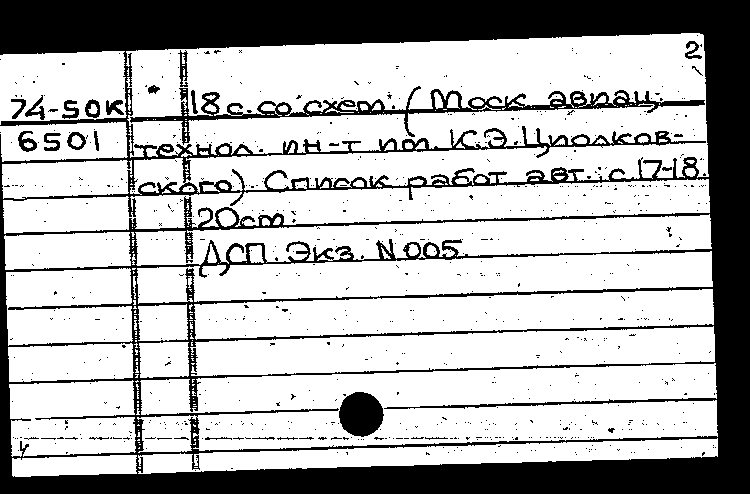 2
74-50к 18 с. со схем. (Моск авиац.
6501 технол. ин-т им. К.Э.Циолков-
ского). Список работ авт.: с.17-18.
20см.
ДСП. Экз. N 005.